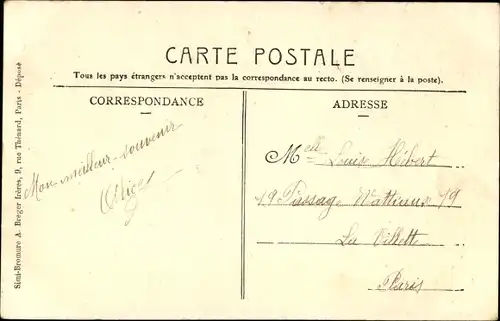 CARTE POSTALE
Tous les pays étrangers n'acceptent pas la correspondance au recto. (Se renseigner à la poste).
CORRESPONDANCE
Mon meilleur souvenir
Alice
ADRESSE
Melle Louis Hébert
19 Passage Wattieux 19
La Villette
Paris
Simi-Bromure A. Breger frères, 9, rue Thénard, Paris - Déposé